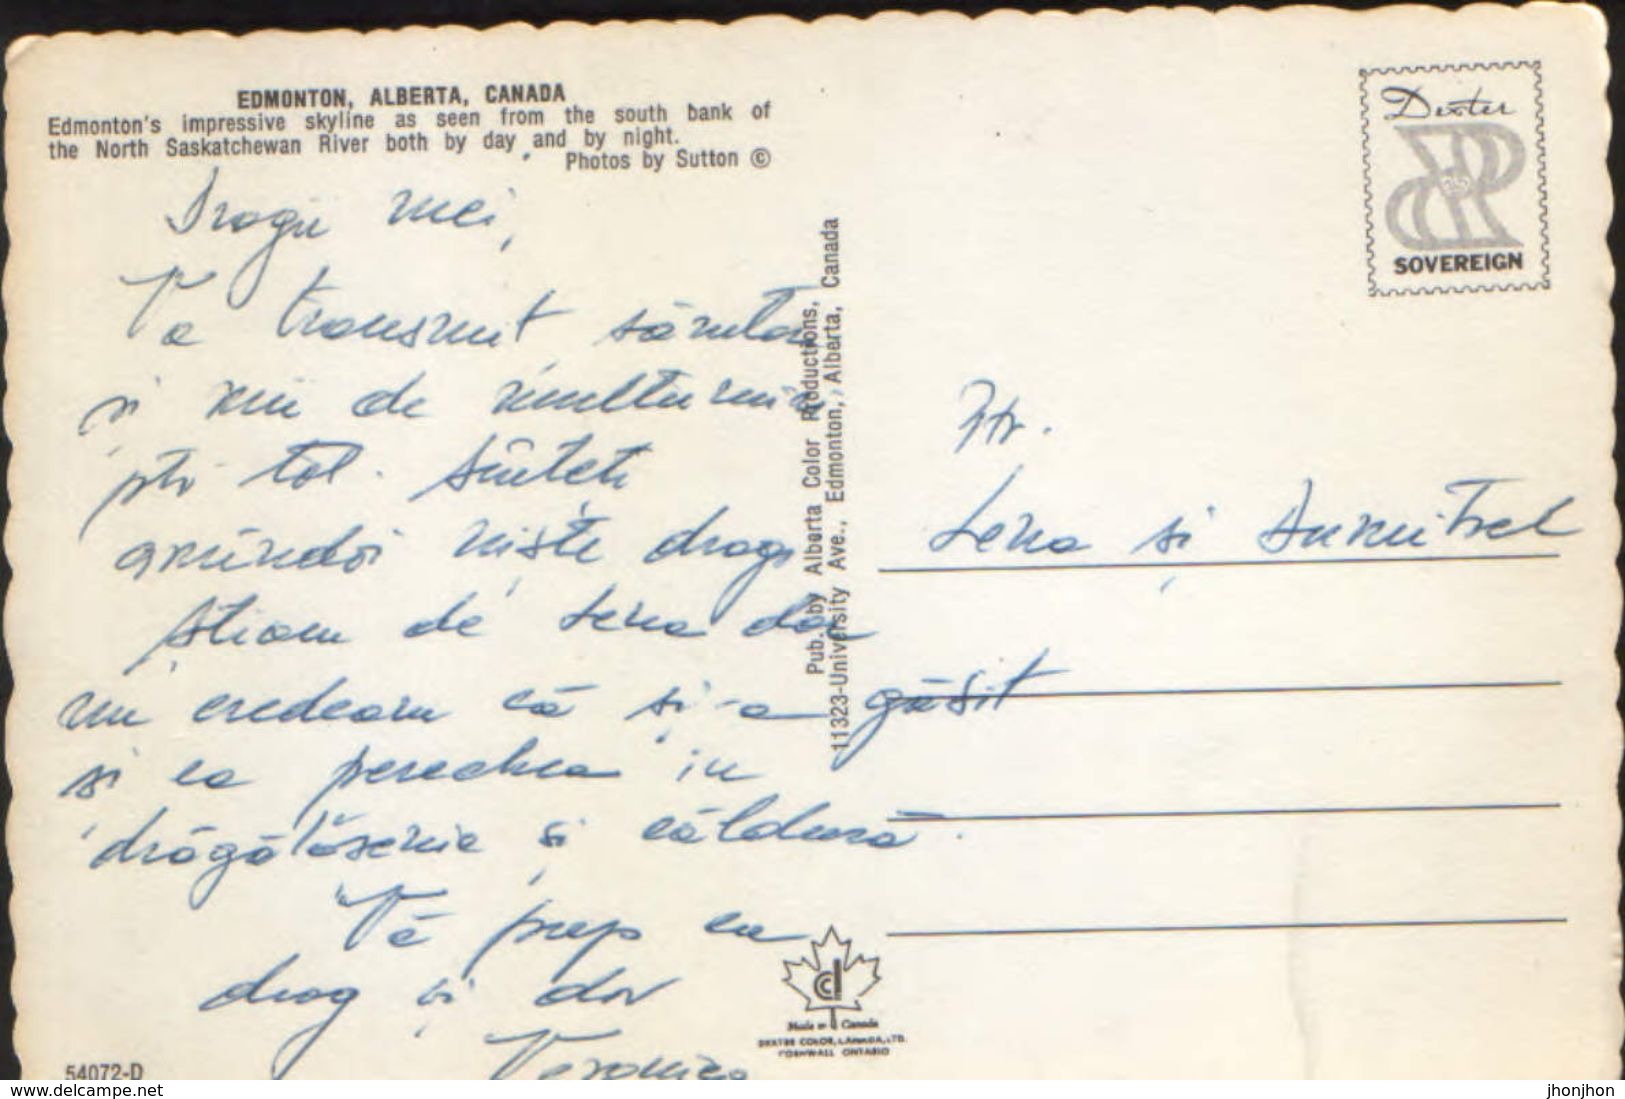 EDMONTON, ALBERTA, CANADA
Edmonton's impressive skyline as seen from the south bank of
the North Saskatchewan River both by day and by night.
Photos by Sutton ©
Dragii mei,
Vă transmit sănătate
și mii de mulțumiri
ptr. tot. Sînteți
amîndoi niște dragi
Știam de Lena dar
nu credeam că și-a găsit
și ea perechea în
drăgălășenie și căldură.
Vă pup cu
drag și dor
Veronica
54072-D
Pub. by Alberta Color Productions,
11323-University Ave., Edmonton, Alberta, Canada
Dexter
SOVEREIGN
Ptr.
Lena și Dumitrel
Made in Canada
DEXTER COLOR CANADA LTD.
CORNWALL ONTARIO
delcampe.net
jhonjhon